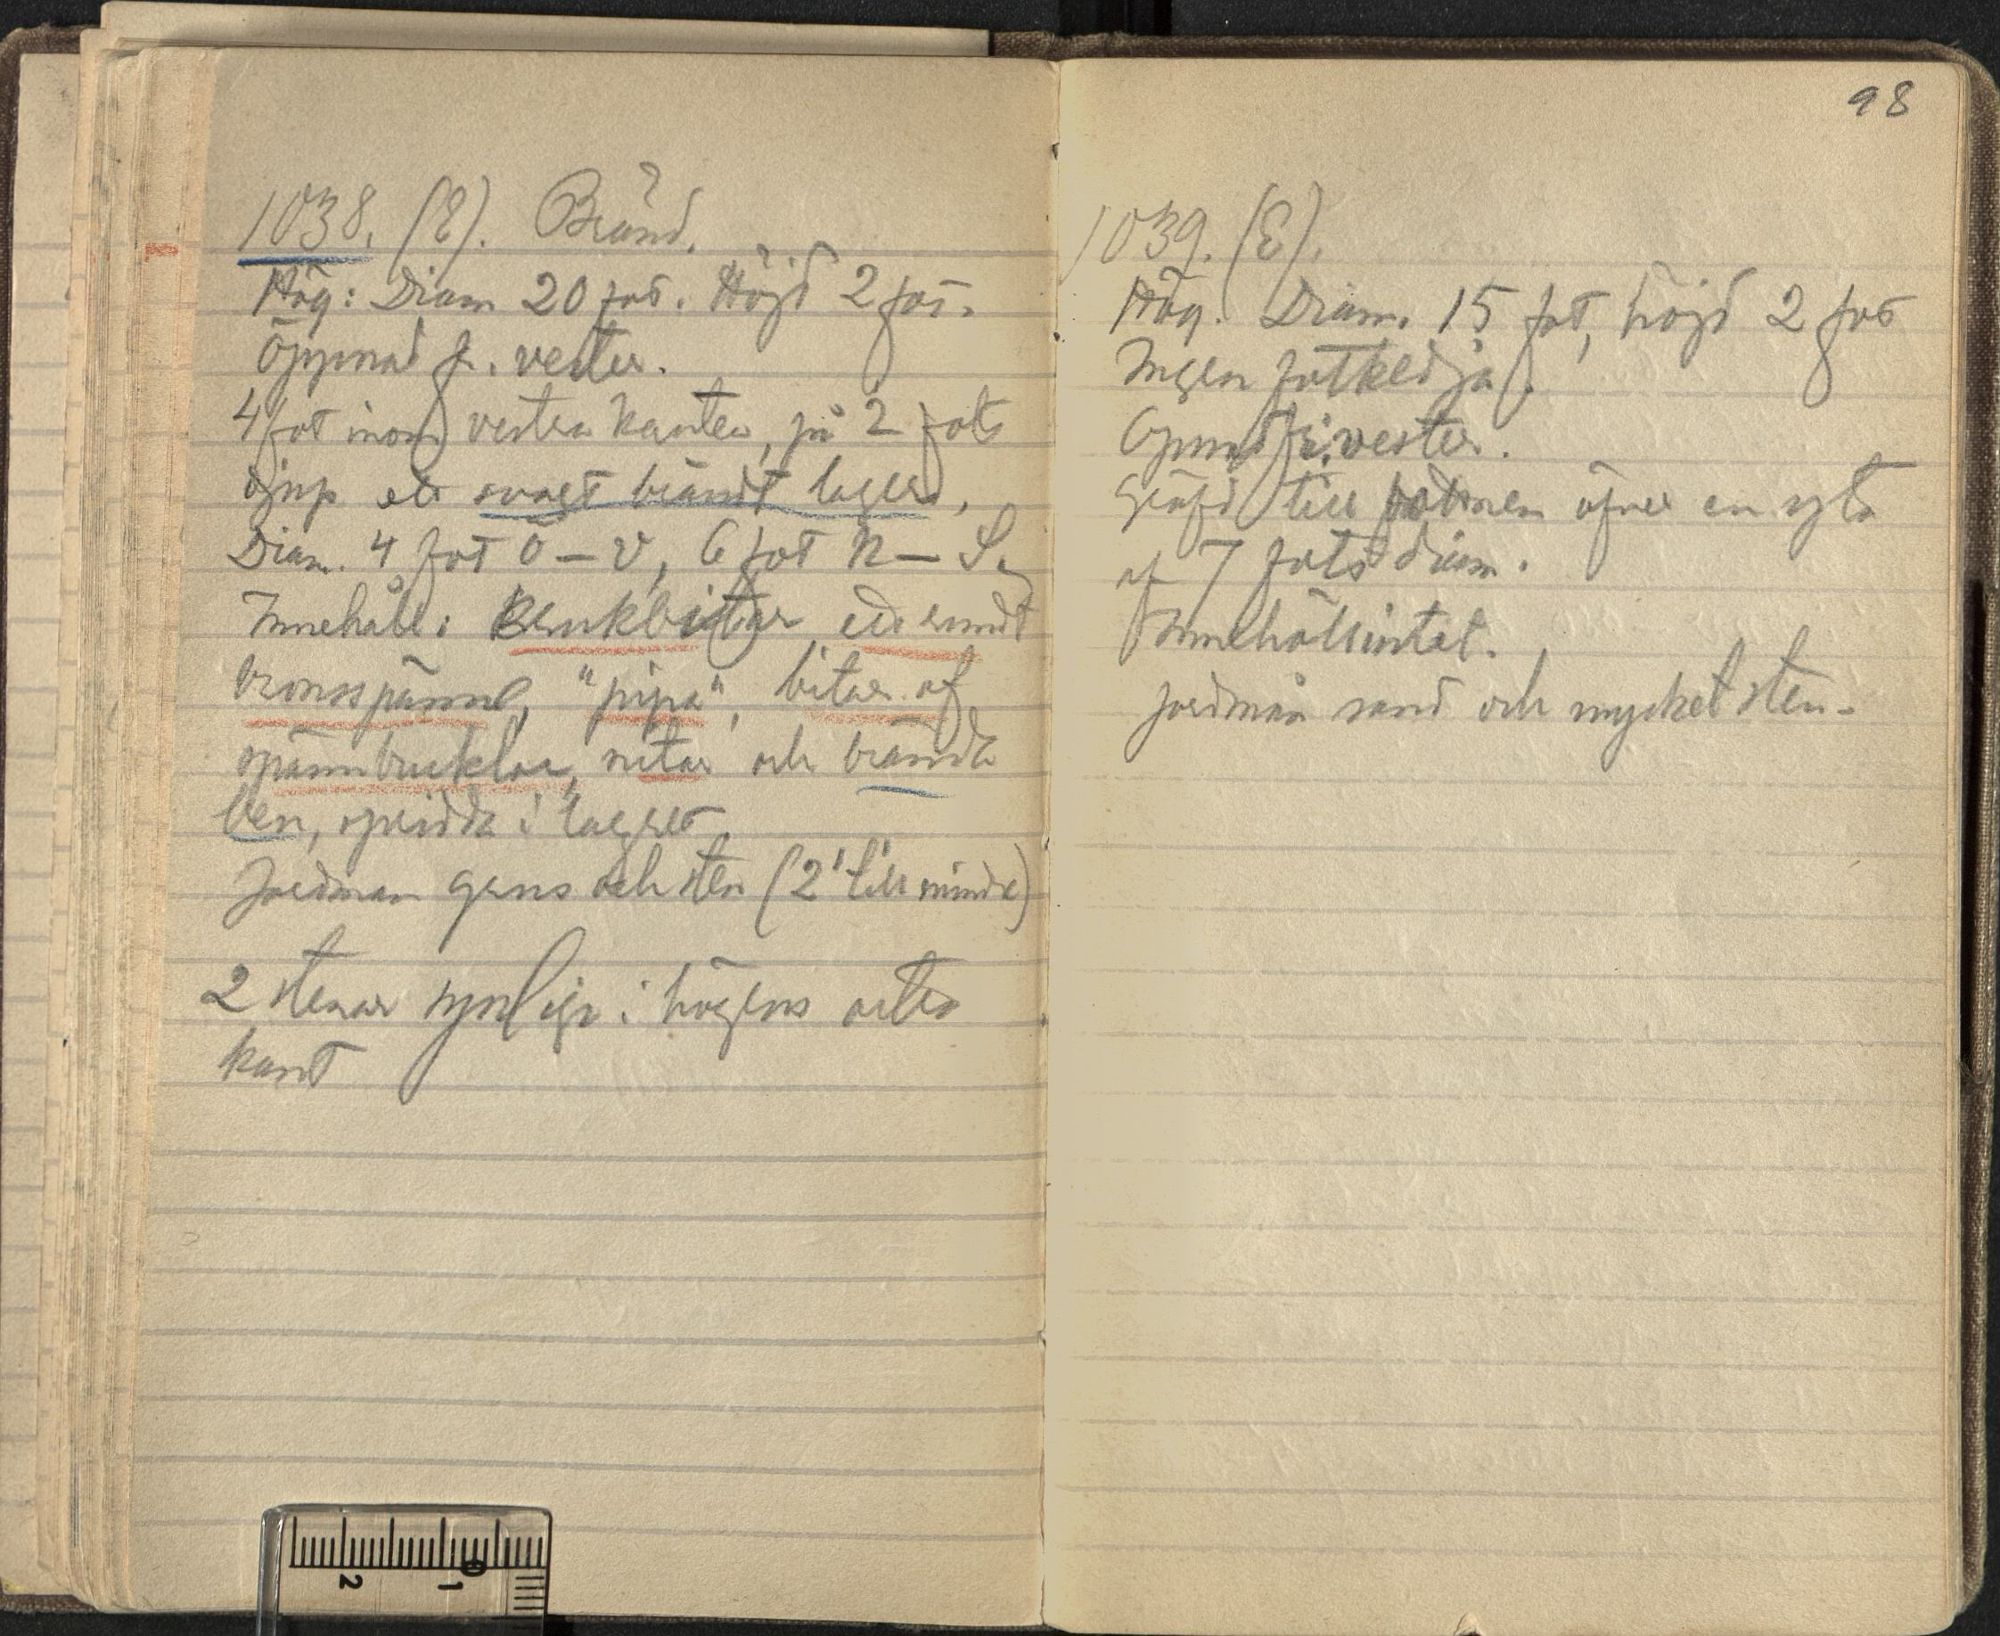 1038. (E). Bränd.
Hög: Diam 20 fot. Höjd 2 fot.
Öppnad fr. vester.
4 fot inom vestra kanten, på 2 fots
djup ett svagt brändt lager,
Diam. 4 fot Ö – V, 6 fot N – S.
Innehåll: Krukbitar, ett rundt
bronsspänne, "pipa", bitar af
spännbucklor, nitar och brända
ben, spridda i lagret.
Jordmån grus och sten (2' till mindre)
2 stenar synliga i högens östra
kant
98
1039. (E).
Hög. Diam. 15 fot, höjd 2 fot
Ingen fotkedja.
Öpnad fr. vester.
Gräfd till bottnen öfver en yta
af 7 fots diam.
Innehöll intet.
Jordmån sand och mycket sten.
2
1
0